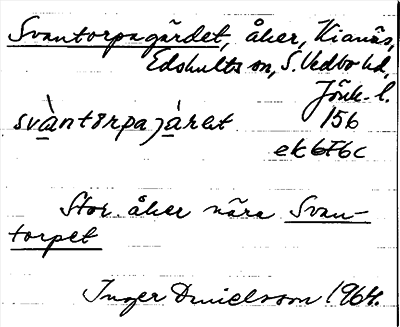 Svantorpagärdet, åker, Kianäs,
Edshults sn, S. Vedbo hd,
Jönk. l.
svàntorpajä̀ret 156
ek 6F6c
Stor åker nära Svan-
torpet
Inger Danielsson 1964.